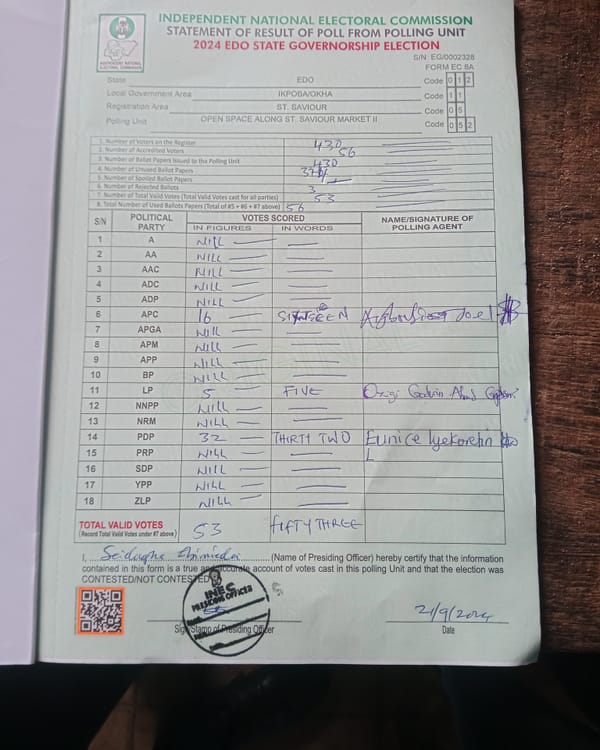 INDEPENDENT NATIONAL ELECTORAL COMMISSION
STATEMENT OF RESULT OF POLL FROM POLLING UNIT
2024 EDO STATE GOVERNORSHIP ELECTION
S/N: EG/0002328
FORM EC 8A
State EDO Code 0 1 2
Local Government Area IKPOBA/OKHA Code 1 1
Registration Area ST. SAVIOUR Code 0 5
Polling Unit OPEN SPACE ALONG ST. SAVIOUR MARKET II Code 0 5 2
1. Number of Voters on the Register 430
2. Number of Accredited Voters 56
3. Number of Ballot Papers Issued to the Polling Unit 430
4. Number of Unused Ballot Papers
5. Number of Spoiled Ballot Papers
6. Number of Rejected Ballots 3
7. Number of Total Valid Votes (Total Valid Votes cast for all parties) 53
8. Total Number of Used Ballots Papers (Total of #5 + #6 + #7 above) 56
S/N POLITICAL PARTY VOTES SCORED NAME/SIGNATURE OF POLLING AGENT
IN FIGURES IN WORDS
1 A NILL
2 AA NILL
3 AAC NILL
4 ADC NILL
5 ADP NILL
6 APC 16 SIXTEEN Joel
7 APGA NILL
8 APM NILL
9 APP NILL
10 BP NILL
11 LP 5 FIVE Godwin
12 NNPP NILL
13 NRM NILL
14 PDP 32 THIRTY TWO Eunice Iyekorehn
15 PRP NILL
16 SDP NILL
17 YPP NILL
18 ZLP NILL
TOTAL VALID VOTES 53 FIFTY THREE
(Record Total Valid Votes under #7 above)
I, (Name of Presiding Officer) hereby certify that the information
contained in this form is a true and accurate account of votes cast in this polling Unit and that the election was
CONTESTED/NOT CONTESTED
INEC
PRESIDING OFFICER
21/9/2024
Sign/Stamp of Presiding Officer Date